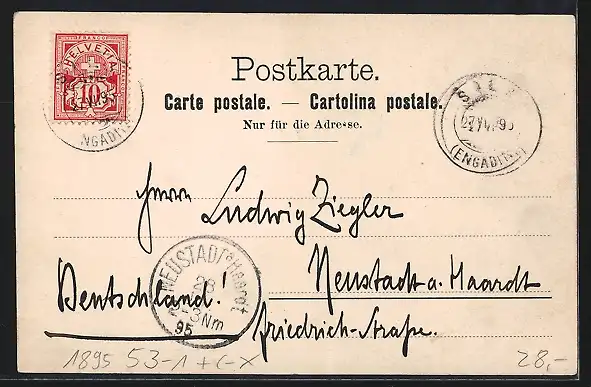 HELVETIA
FRANCO
10
NGADIN
Postkarte.
Carte postale. — Cartolina postale.
Nur für die Adresse.
SILS
(ENGADIN)
Herrn Ludwig Ziegler
Neustadt a. Haardt
Deutschland!
Friedrich-Straße.
NEUSTADT a/Haardt
28
3 Nm
95
1895 53-1 + C-X
28,-